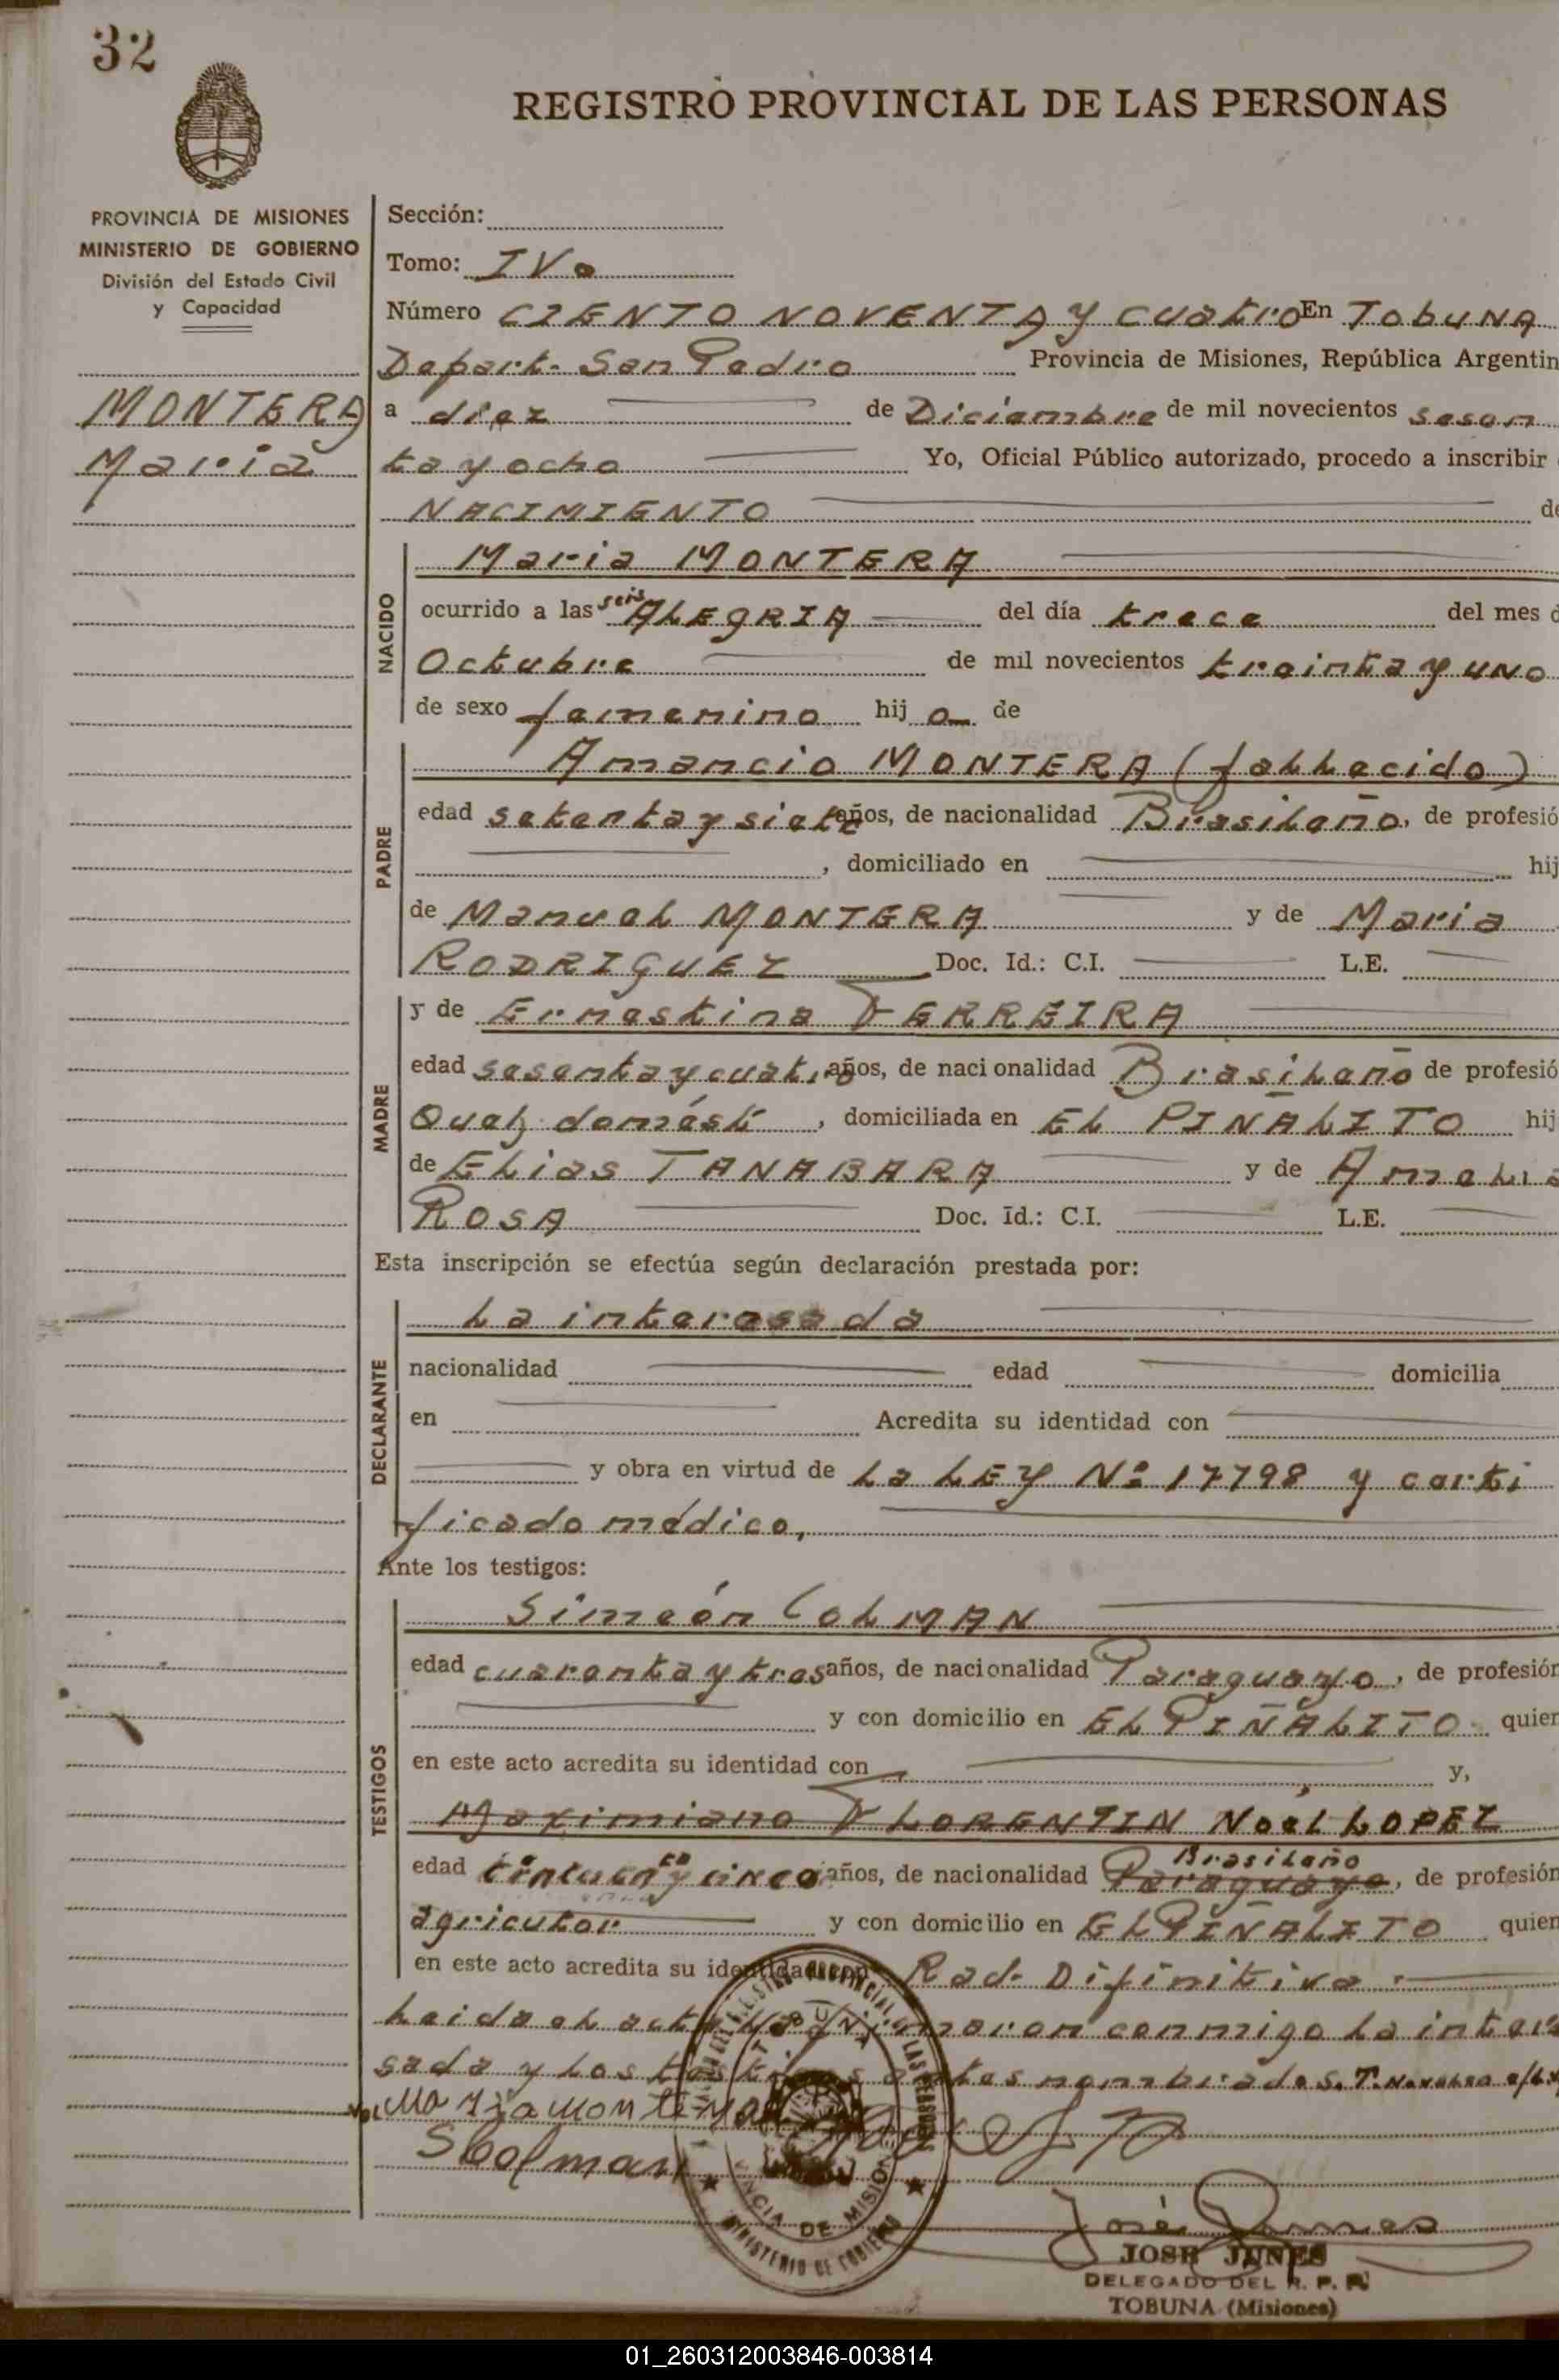 32
REGISTRO PROVINCIAL DE LAS PERSONAS
PROVINCIA DE MISIONES
MINISTERIO DE GOBIERNO
División del Estado Civil
y Capacidad
MONTERA
Maria
Sección:
Tomo: IVo
Número CIENTO NOVENTA y cuatro En TobuNA
Depart. San Pedro Provincia de Misiones, República Argentin
a diez de Diciembre de mil novecientos sesen
ta y ocho Yo, Oficial Público autorizado, procedo a inscribir
NACIMIENTO de
NACIDO
Maria MONTERA
ocurrido a las seis ALEgRIA del día trece del mes d
Octubre de mil novecientos treinta y uno
de sexo femenino hij a de
PADRE
Amancio MONTERA (fallecido)
edad setenta y siete años, de nacionalidad Brasileño, de profesió
, domiciliado en hij
de Manuel MONTERA y de Maria
RODRIGUEZ Doc. Id.: C.I. L.E.
MADRE
y de Ernestina FERREIRA
edad sesenta y cuatro años, de nacionalidad Brasileño de profesió
Queh. domést. , domiciliada en EL PIÑALITO hij
de Elias TANABARA y de Amelia
ROSA Doc. Id.: C.I. L.E.
Esta inscripción se efectúa según declaración prestada por:
DECLARANTE
La interesada
nacionalidad edad domicilia
en Acredita su identidad con
y obra en virtud de la LEy Nº 17798 y certi
ficado médico,
Ante los testigos:
TESTIGOS
Simeón COLMAN
edad cuarenta y tres años, de nacionalidad Paraguayo, de profesión
y con domicilio en EL PIÑALITO quien
en este acto acredita su identidad con y,
Maximiano FLORENTIN Noél LOPEZ
edad cincuenta y cinco años, de nacionalidad Paraguayo Brasileño, de profesión
agricultor y con domicilio en EL PIÑALITO quien
en este acto acredita su identidad con Rad. Difinitiva.
Leida el acta la firmaron conmigo la intere
sada y los testigos antes nombrados.
Maria Montera
SColman
José Junes
JOSE JUNES
DELEGADO DEL R. P. P.
TOBUNA (Misiones)
MINISTERIO DE GOBIERNO
01_260312003846-003814